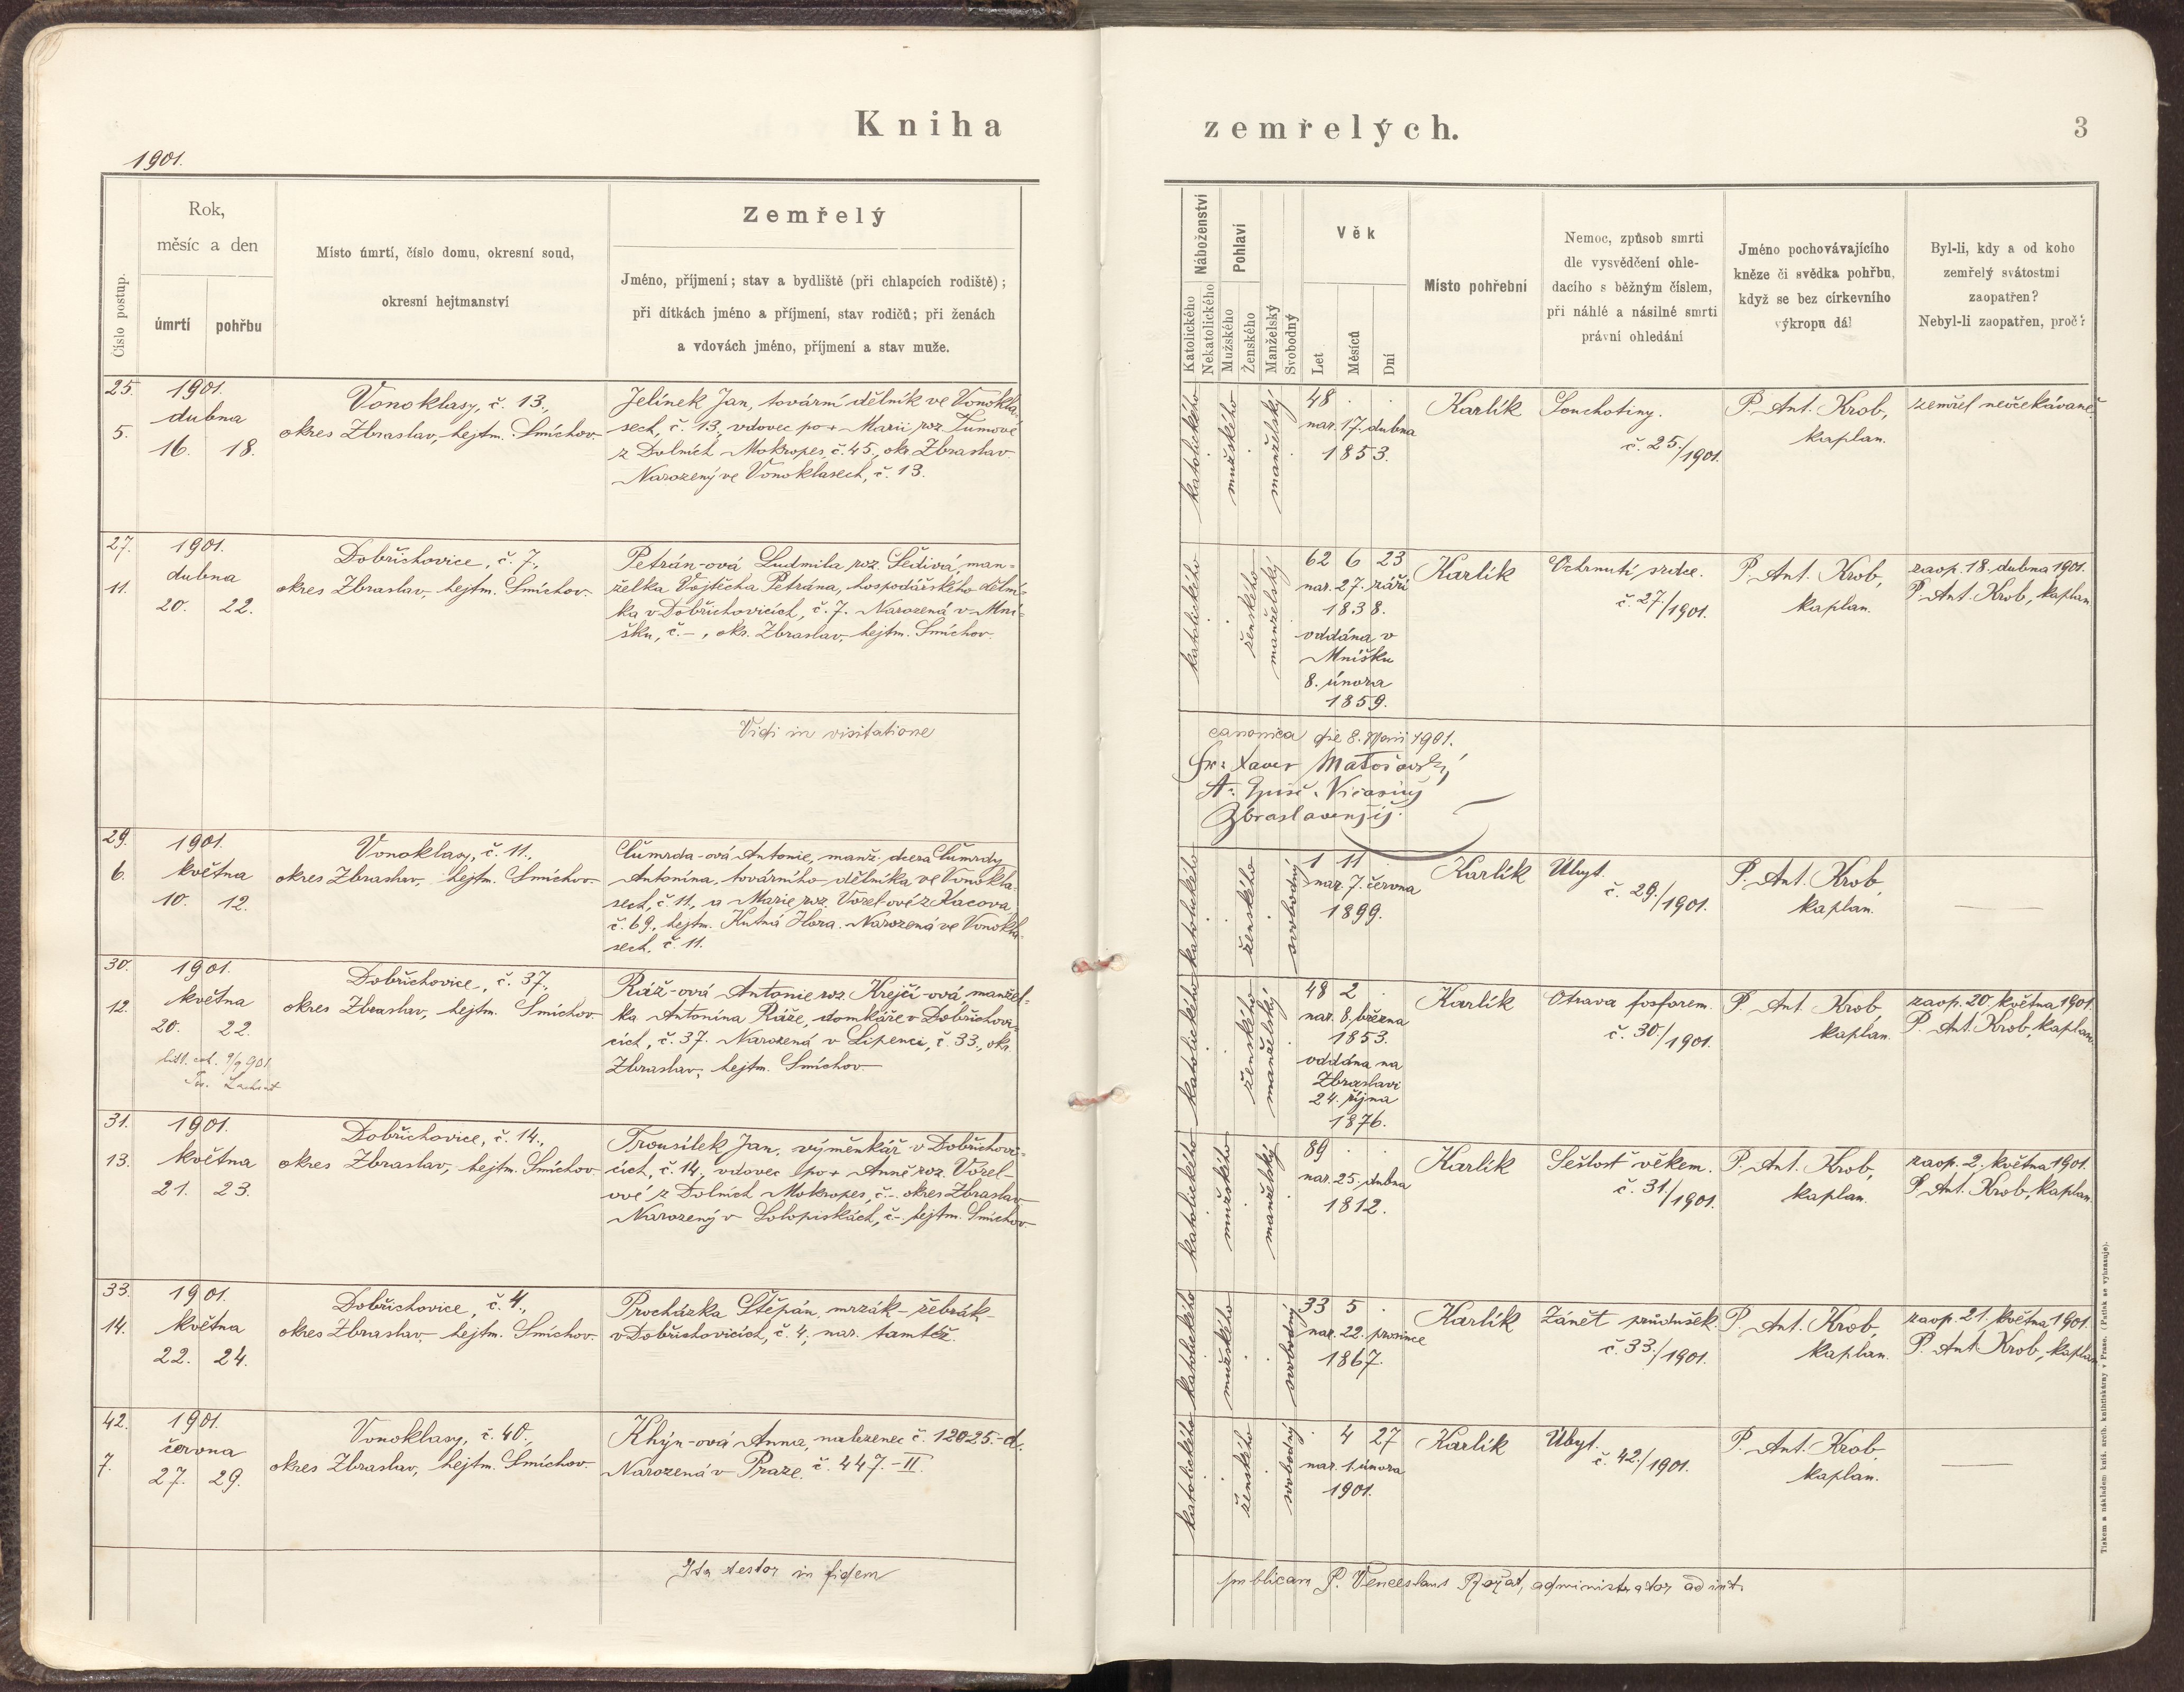 Kniha
zemřelých.
3
1901.
Číslo postup.
Rok,
měsíc a den
úmrtí
pohřbu
Místo úmrtí, číslo domu, okresní soud,
okresní hejtmanství
Zemřelý
Jméno, příjmení; stav a bydliště (při chlapcích rodiště);
při dítkách jméno a příjmení, stav rodičů; při ženách
a vdovách jméno, příjmení a stav muže.
Náboženství
Katolického
Nekatolického
Pohlaví
Mužského
Ženského
Manželský
Svobodný
Věk
Let
Měsíců
Dní
Místo pohřební
Nemoc, způsob smrti
dle vysvědčení ohle-
dacího s běžným číslem,
při náhlé a násilné smrti
právní ohledání
Jméno pochovávajícího
kněze či svědka pohřbu,
když se bez církevního
výkropu dál
Byl-li, kdy a od koho
zemřelý svátostmi
zaopatřen?
Nebyl-li zaopatřen, proč?
25.
5.
1901.
dubna
16. 18.
Vonoklasy, č. 13.,
okres Zbraslav, hejtm. Smíchov
Jelínek Jan, tovární dělník ve Vonokla-
sech, č. 13., vdovec po + Marii roz. Tůmové
z Dolních Mokropes, č. 45., okr. Zbraslav.
Narozený ve Vonoklasech, č. 13.
katolického
mužského
manželský
48 . .
nar. 17. dubna
1853.
Karlík
Souchotiny.
č. 25./1901.
P. Ant. Krob,
kaplan.
zemřel neočekávaně
27.
11.
1901.
dubna
20. 22.
Dobřichovice, č. 7.,
okres Zbraslav, hejtm. Smíchov.
Petrán-ová Ludmila roz. Šedivá, man-
želka Vojtěcha Petrána, hospodářského dělní-
ka v Dobřichovicích, č. 7. Narozená v Mní-
šku, č. -, okr. Zbraslav, hejtm. Smíchov.
katolického
ženského
manželský
62 6 23
nar. 27. září
1838.
oddána v
Mníšku
8. února
1859.
Karlík
Ochrnutí srdce.
č. 27./1901.
P. Ant. Krob,
kaplan.
zaop. 18. dubna 1901.
P. Ant. Krob, kaplan
Vidi in visitatione
canonica die 8. 1901.
Fr. Xaver
Zbraslavensis.
29.
6.
1901.
května
10. 12.
Vonoklasy, č. 11.,
okres Zbraslav, hejtm. Smíchov
Čumrda-ová Antonie, manž. dcera Čumrdy
Antonína, továrního dělníka ve Vonokla-
sech, č. 11., a Marie roz. Vozel-ové z Kacova
č. 69., hejtm. Kutná Hora. Narozená ve Vonokla-
sech, č. 11.
katolického
ženského
svobodný
1 11 .
nar. 7. června
1899.
Karlík
Úbyt.
č. 29./1901.
P. Ant. Krob,
kaplan.
30.
12.
1901.
května
20. 22.
Dobřichovice, č. 37.,
okres Zbraslav, hejtm. Smíchov
Ráž-ová Antonie roz. Krejčí-ová, manžel-
ka Antonína Ráže, domkáře v Dobřichovi-
cích, č. 37. Narozená v Lipenci, č. 33., okr.
Zbraslav, hejtm. Smíchov
katolického
ženského
manželský
48 2 .
nar. 8. března
1853.
oddána na
Zbraslavi
24. října
1876.
Karlík
Otrava fosforem.
č. 30/1901.
P. Ant. Krob,
kaplan.
zaop. 20. května 1901.
P. Ant. Krob, kaplan.
31.
13.
1901.
května
21. 23.
Dobřichovice, č. 14.,
okres Zbraslav, hejtm. Smíchov
Trousílek Jan, výměnkář v Dobřichovi-
cích, č. 14., vdovec po + Anně roz. Vozel-
ové z Dolních Mokropes, č. -. okres Zbraslav
Narozený v Solopiskách, č. -. hejtm. Smíchov
katolického
mužského
manželský
89 . .
nar. 25. dubna
1812.
Karlík
Sešlost věkem.
č. 31/1901.
P. Ant. Krob,
kaplan.
zaop. 2. května 1901.
P. Ant. Krob, kaplan.
33.
14.
1901.
května
22. 24.
Dobřichovice, č. 4.,
okres Zbraslav hejtm. Smíchov.
Procházka Štěpán, mrzák - žebrák
v Dobřichovicích, č. 4, nar. tamtéž.
katolického
mužského
svobodný
33 5 .
nar. 22. prosince
1867.
Karlík
Zánět průdušek.
č. 33./1901.
P. Ant. Krob,
kaplan.
zaop. 21. května 1901.
P. Ant Krob, kaplan
42.
7.
1901.
června
27. 29.
Vonoklasy, č. 40.,
okres Zbraslav, hejtm. Smíchov.
Khýn-ová Anna, nalezenec č. 12025.-d.
Narozená v Praze. č. 447.-II.
katolického
ženského
svobodný
. 4 27
nar. 1. února
1901.
Karlík
Úbyt.
č. 42./1901.
P. Ant. Krob,
kaplan.
Ita testor in fidem
publicam P. Venceslaus administrator ad int.
Tiskem a nákladem kníž. arcib. knihtiskárny v Praze. (Patisk se vyhrazuje).